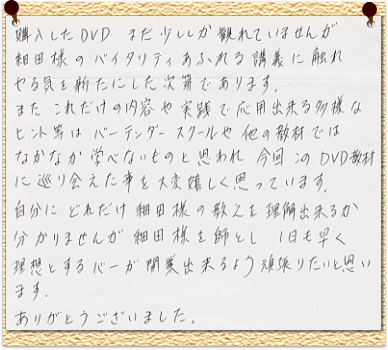 購入したDVD まだ少ししか観れていませんが
細田様のバイタリティあふれる講義に触れ
やる気を新たにした次第であります。
また これだけの内容や実践で応用出来る多様な
ヒント等は バーテンダースクールや他の教材では
なかなか学べないものと思われ 今回このDVD教材
に巡り会えた事を大変嬉しく思っています。
自分に どれだけ細田様の教えを理解出来るか
分かりませんが 細田様を師とし 1日も早く
理想とするバーが開業出来るよう頑張りたいと思い
ます。
ありがとうございました。